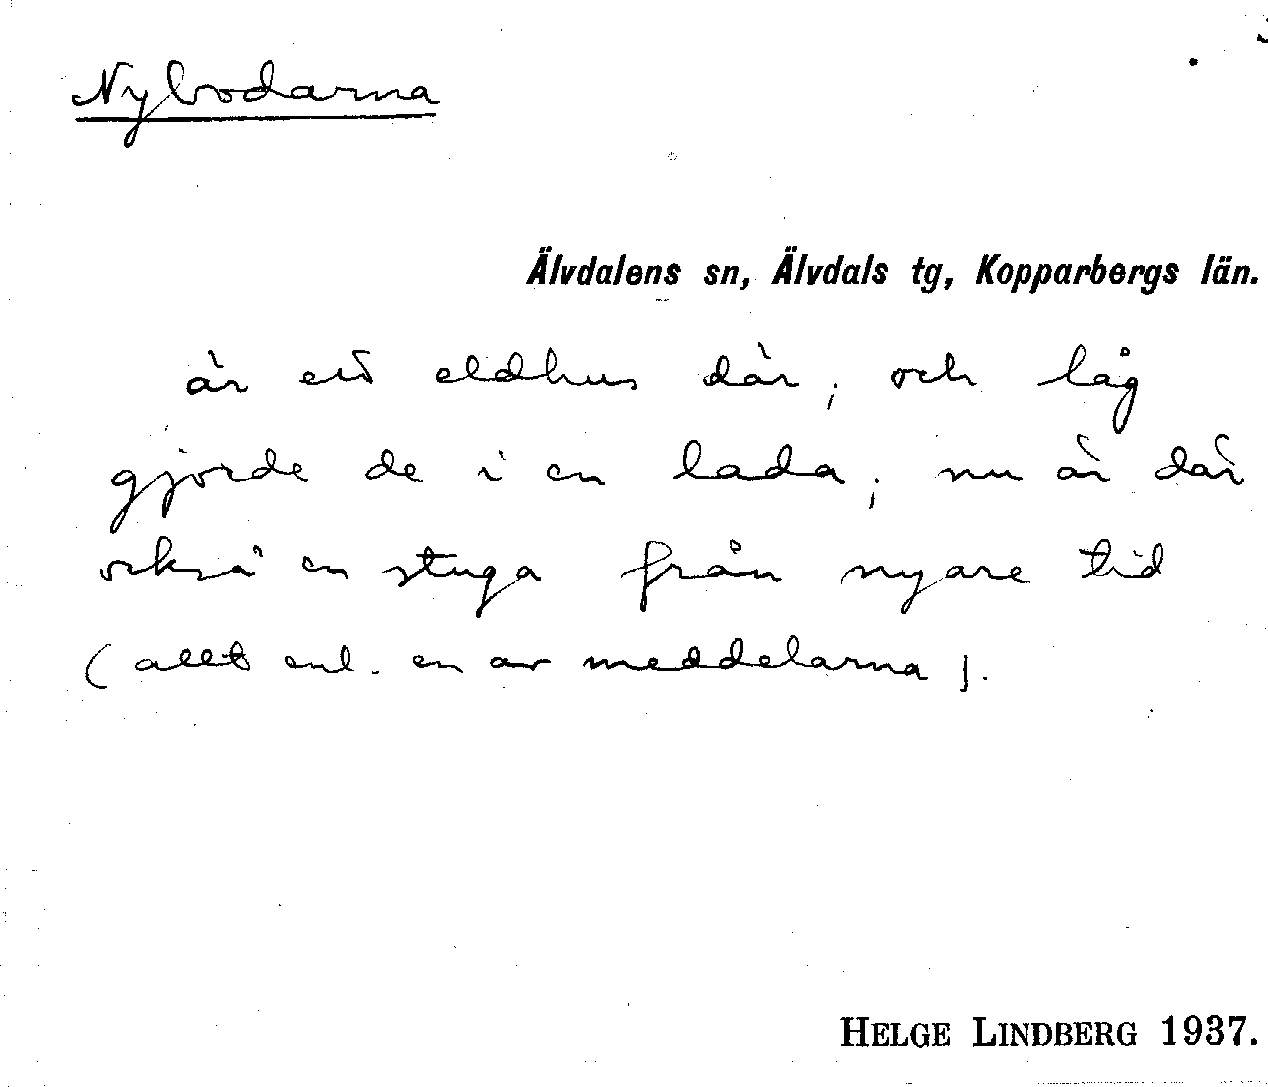 Nybodarna
Älvdalens sn, Älvdals tg, Kopparbergs län.
är ett eldhus där, och låg
gjorde de i en lada; nu är där
också en stuga från nyare tid
(allt enl. en av meddelarna).
HELGE LINDBERG 1937.